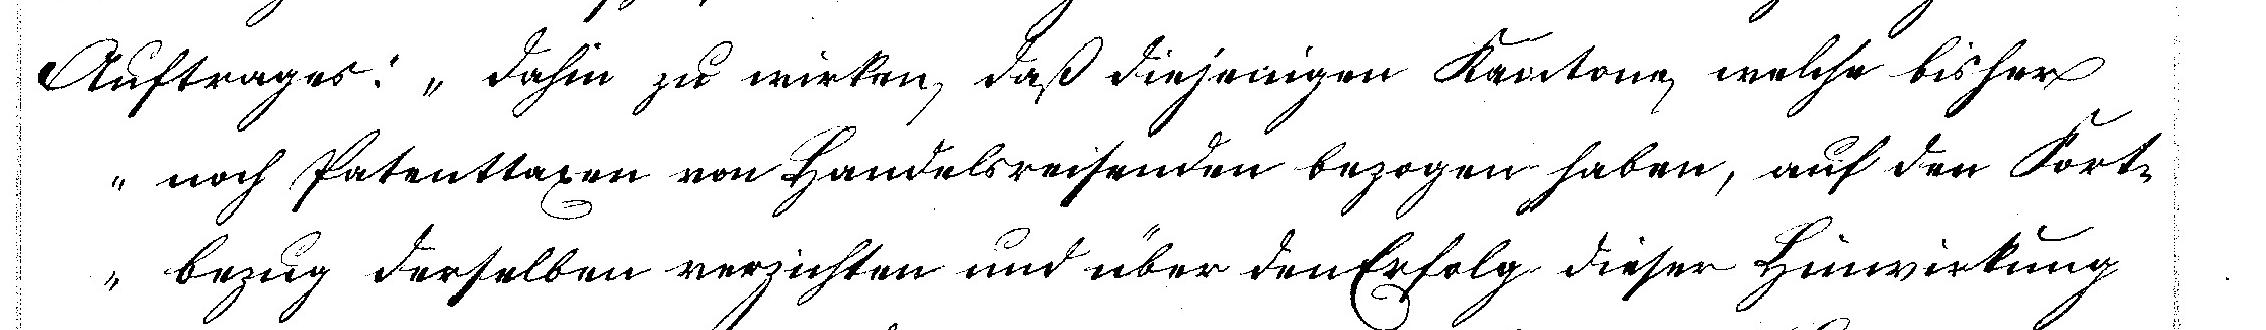 Auftrages: „dahin zu wirken, daß diejenigen Kantone, welche bisher
„noch Patenttaxen von Handelsreisenden bezogen haben, auf den Fort-
„bezug derselben verzichten und über den Erfolg dieser Hinwirkung